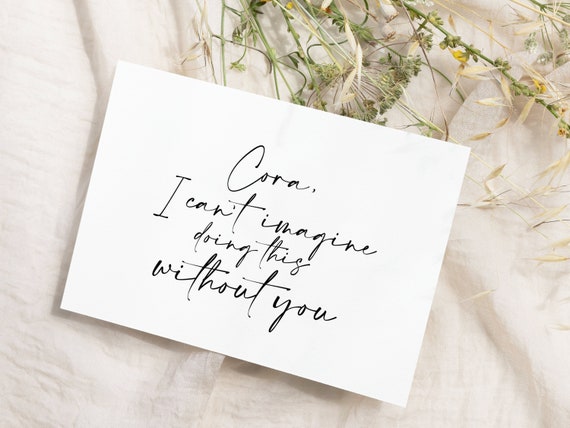 Cora,
I can't imagine
doing this
without you